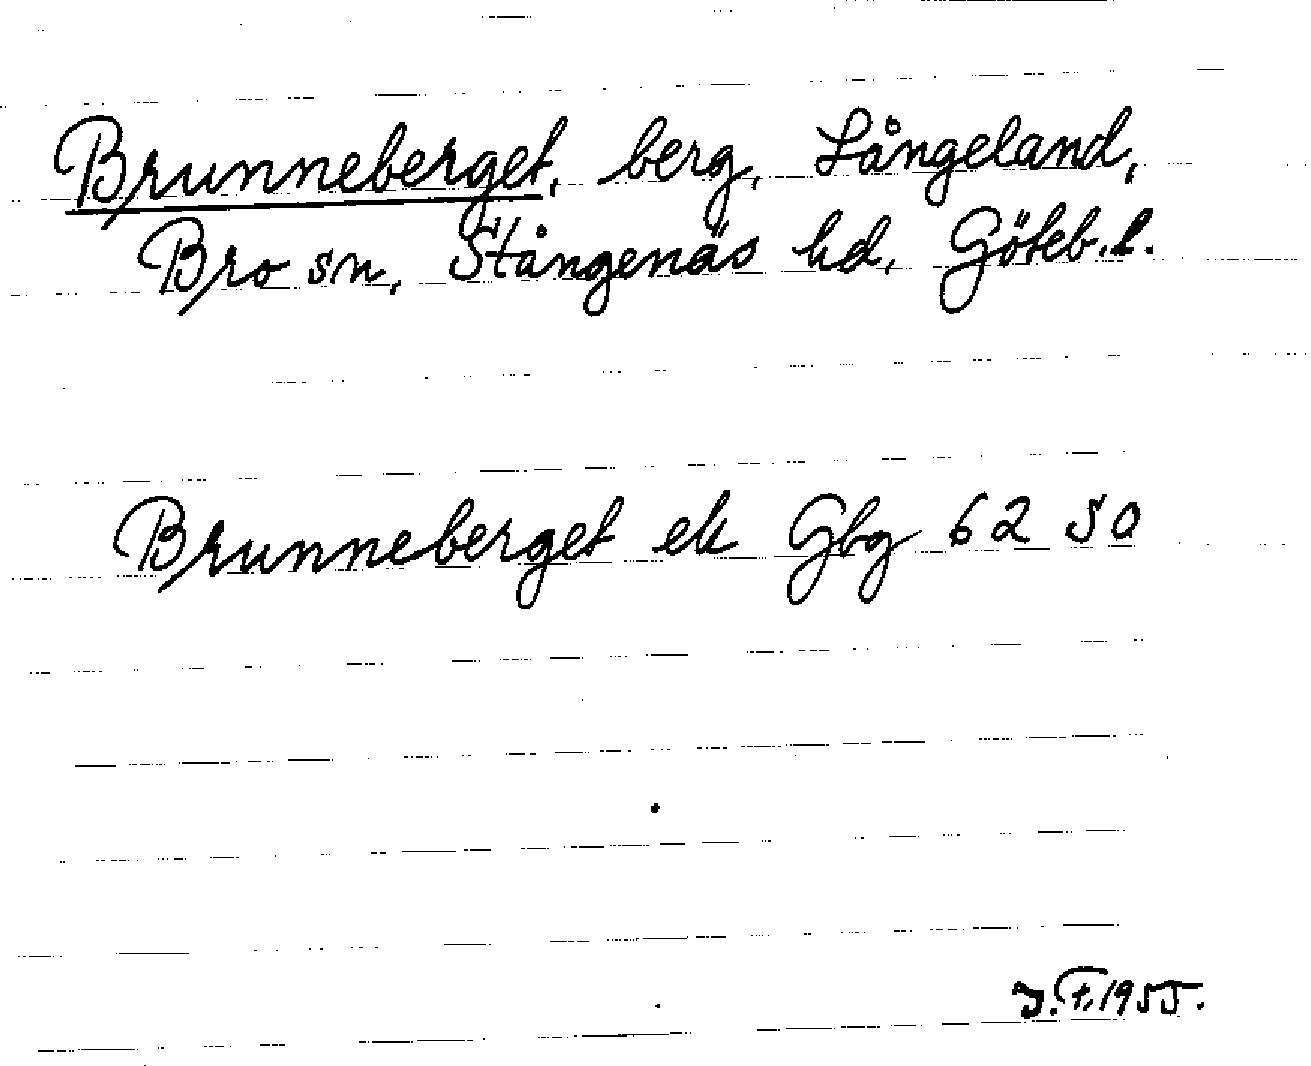 Brunneberget, berg, Långeland,
Bro sn, Stångenäs hd, Göteb. l.
Brunneberget ek Gbg 62 50
J.F. 1955.